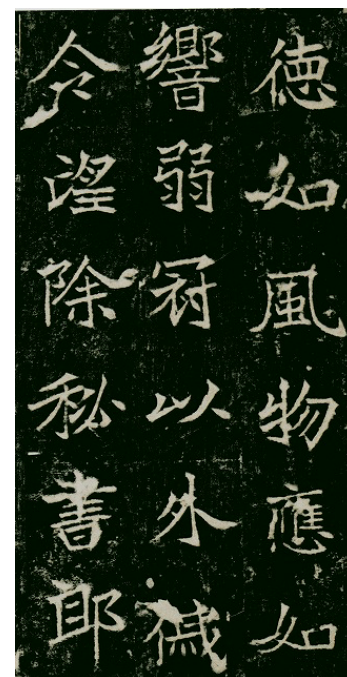 徳如風物應如
響弱冠以外傶
令望除秘書郎